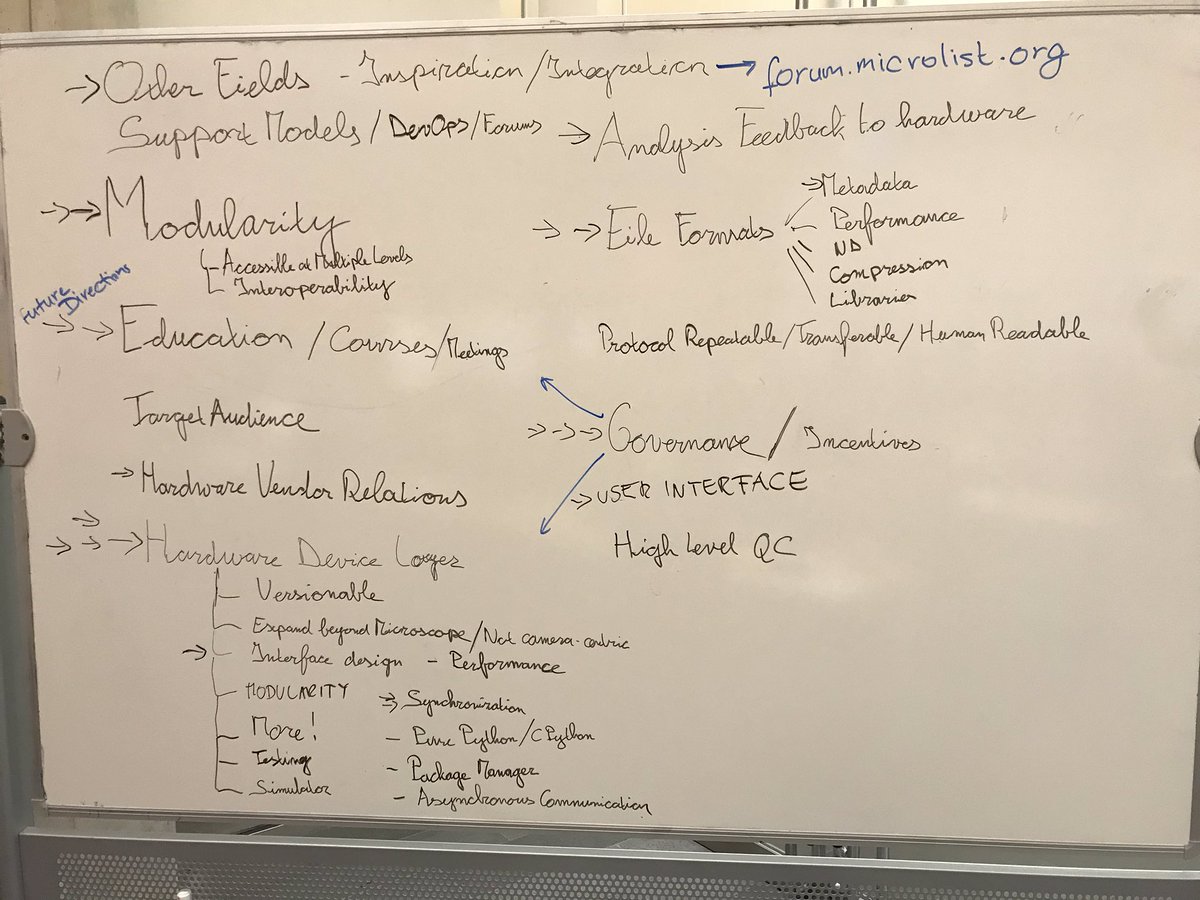 → Other Fields - Inspiration/Integration → forum.microlist.org
Support Models / DevOps / Forums
→ Analysis Feedback to hardware
→→ Modularity
- Accessible at Multiple Levels
- Interoperability
Future Directions
→→ Education / Courses / Meetings
Target Audience
→ Hardware Vendor Relations
→→→→ Hardware Device Layer
- Versionable
- Expand beyond Microscope/Not camera-centric
→ - Interface design - Performance
- MODULARITY
- More!
- Testing
- Simulator
⇒ Synchronization
- Pure Python/CPython
- Package Manager
- Asynchronous Communication
→→ File Formats
→ Metadata
Performance
ND
Compression
Libraries
Protocol Repeatable/Transferable/Human Readable
→→→ Governance / Incentives
→ USER INTERFACE
High Level QC